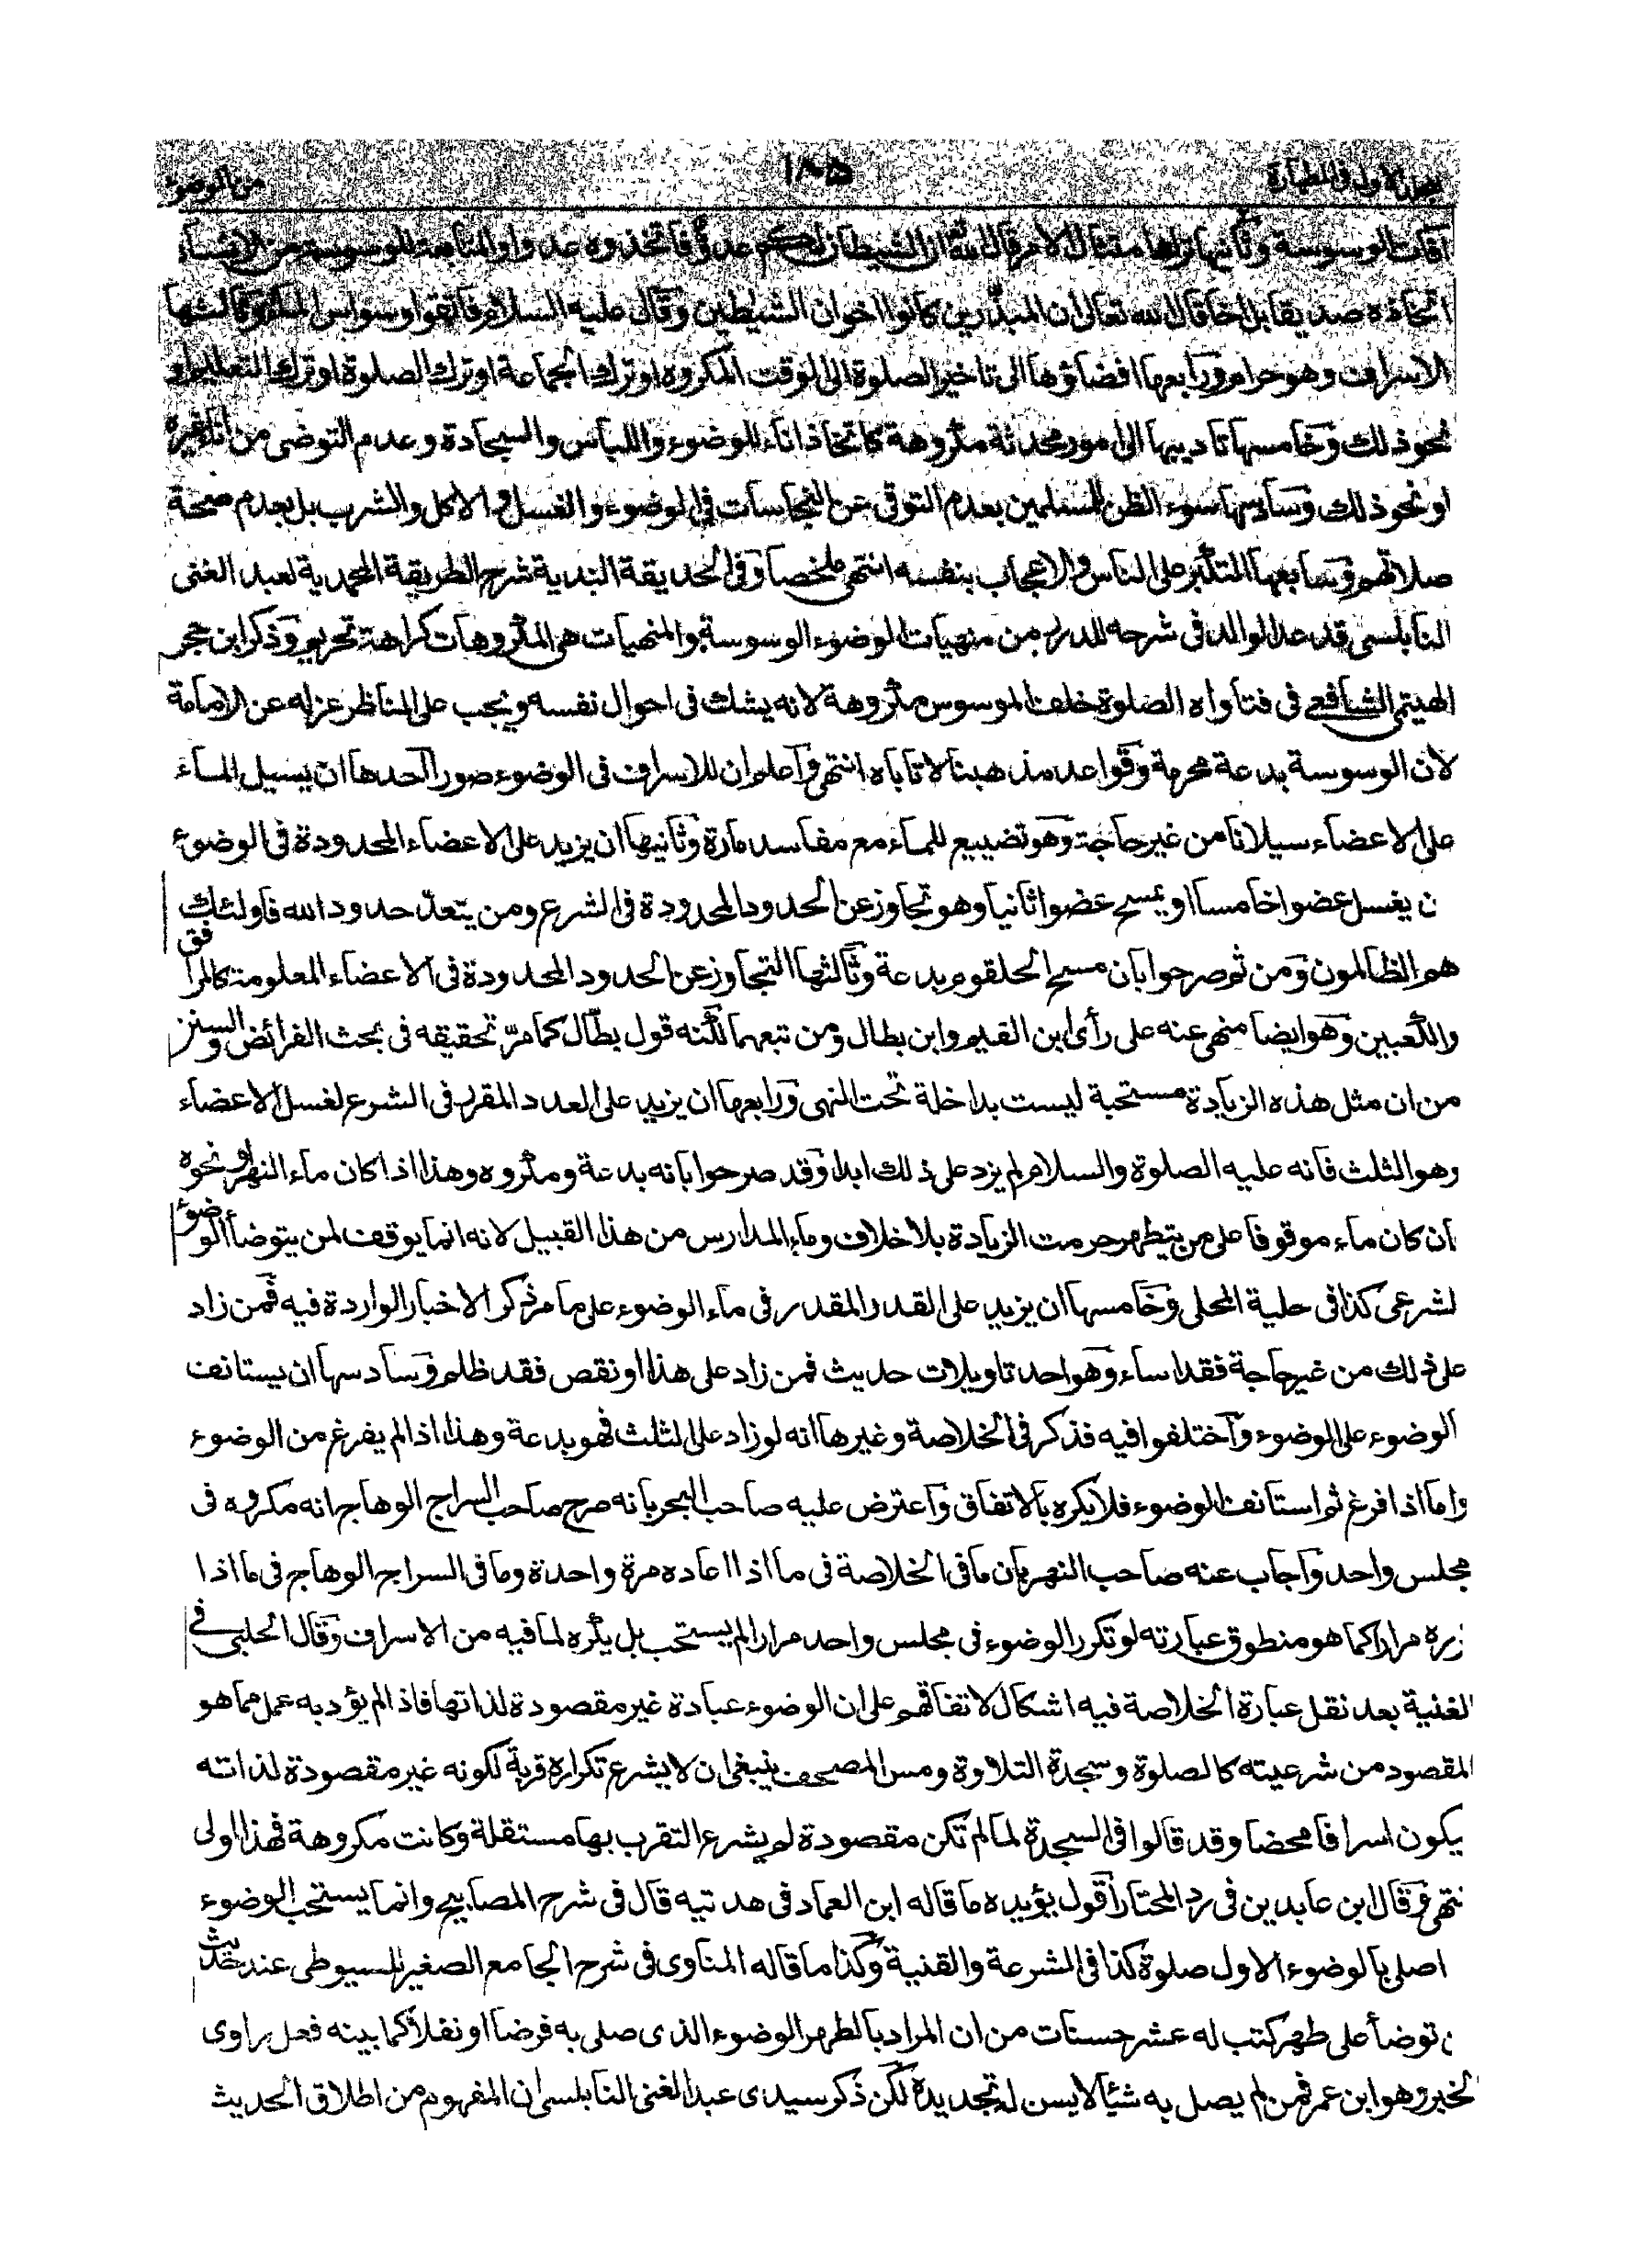 من الوضوء ١٨٥ فى الطهارة
آفات الوسوسة وثانيها ترك امتثال الامر قال الله تعالى ان الشيطان لكم عدو فاتخذوه عدوا والمتابعة للوسوسة من
اتخاذه صديقا بل اخا قال الله تعالى ان المبذرين كانوا اخوان الشيطين وقال عليه السلام فاتقوا وسواس الماء وثالثها
الاسراف وهو حرام ورابعها افضاؤها الى تاخير الصلوة الى الوقت المكروه او ترك الجماعة او ترك الصلوة او ترك التعليم او
نحو ذلك وخامسها تاديبها الى امور محدثة مكروهة كاتخاذ اناء للوضوء واللباس والسجادة وعدم التوضى من اناء غيره
او نحو ذلك وسادسها سوء الظن للمسلمين بعدم التوقى عن النجاسات فى الوضوء والغسل والاكل والشرب بل بعدم صحة
صلاتهم وسابعها التكبر على الناس والاعجاب بنفسه انتهى ملخصا وفى الحديقة الندية شرح الطريقة المحمدية لعبد الغنى
النابلسى قد عد الوالد فى شرحه للدرر من منهيات الوضوء الوسوسة والمنهيات هى المكروهات كراهة تحريم وذكر ابن حجر
الهيتمى الشافعى فى فتاواه الصلوة خلف الموسوس مكروهة لانه يشك فى احوال نفسه ويجب على الناظر عزله عن الامامة
لان الوسوسة بدعة محرمة وقواعد مذهبنا لا تاباه انتهى واعلم ان للاسراف فى الوضوء صورا احدها ان يسيل الماء
على الاعضاء سيلانا من غير حاجة وهو تضييع للماء مع مفاسد مارة وثانيها ان يزيد على الاعضاء المحدودة فى الوضوء
ن يغسل عضوا خامسا او يمسح عضوا ثانيا وهو تجاوز عن الحدود المحدودة فى الشرع ومن يتعد حدود الله فاولئك
هم الظالمون ومن ثم صرحوا بان مسح الحلقوم بدعة وثالثها التجاوز عن الحدود المحدودة فى الاعضاء المعلومة كالمرافق
والكعبين وهو ايضا منهى عنه على رأى ابن القيم وابن بطال ومن تبعهما لكنه قول بطال كما مر تحقيقه فى بحث الفرائض والسنن
من ان مثل هذه الزيادة مستحبة ليست بداخلة تحت النهى ورابعها ان يزيد على العدد المقرر فى الشرع لغسل الاعضاء
وهو الثلث فانه عليه الصلوة والسلام لم يزد على ذلك ابدا وقد صرحوا بانه بدعة ومكروه وهذا اذا كان ماء النهر او نحوه
ان كان ماء موقوفا على من يتطهر حرمت الزيادة بلا خلاف وماء المدارس من هذا القبيل لانه انما يوقف لمن يتوضأ الوضوء
لشرعى كذا فى حلية المحلى وخامسها ان يزيد على القدر المقدر فى ماء الوضوء على ما مر ذكر الاخبار الواردة فيه فمن زاد
على ذلك من غير حاجة فقد اساء وهو احد تاويلات حديث فمن زاد على هذا او نقص فقد ظلم وسادسها ان يستانف
الوضوء على الوضوء واختلفوا فيه فذكر فى الخلاصة وغيرها انه لو زاد على الثلث فهو بدعة وهذا اذا لم يفرغ من الوضوء
واما اذا فرغ ثم استانف الوضوء فلا يكره بالاتفاق واعترض عليه صاحب البحر بانه صرح صاحب السراج الوهاج انه مكروه فى
مجلس واحد واجاب عنه صاحب النهر بان ما فى الخلاصة فى ما اذا اعاده مرة واحدة وما فى السراج الوهاج فى ما اذا
رره مرارا كما هو منطوق عبارته لو تكرر الوضوء فى مجلس واحد مرارا لم يستحب بل يكره لما فيه من الاسراف وقال الحلبى فى
الغنية بعد نقل عبارة الخلاصة فيه اشكال لاتفاقهم على ان الوضوء عبادة غير مقصودة لذاتها فاذا لم يؤد به عمل مما هو
المقصود من شرعيته كالصلوة وسجدة التلاوة ومس المصحف ينبغى ان لا يشرع تكراره قربة لكونه غير مقصودة لذاته
يكون اسرافا محضا وقد قالوا فى السجدة لما لم تكن مقصودة لم يشرع التقرب بها مستقلة وكانت مكروهة فهذا اولى
نتهى وقال ابن عابدين فى رد المحتار اقول يؤيده ما قاله ابن العماد فى هديته قال فى شرح المصابيح وانما يستحب الوضوء
اصلى بالوضوء الاول صلوة كذا فى الشرعة والقنية وكذا ما قاله المناوى فى شرح الجامع الصغير للسيوطى عند حديث
ن توضأ على طهر كتب له عشر حسنات من ان المراد بالطهر الوضوء الذى صلى به فرضا او نفلا كما بينه فعل راوى
لخبر وهو ابن عمر فمن لم يصل به شيئا لا يسن له تجديده لكن ذكر سيدى عبد الغنى النابلسى ان المفهوم من اطلاق الحديث